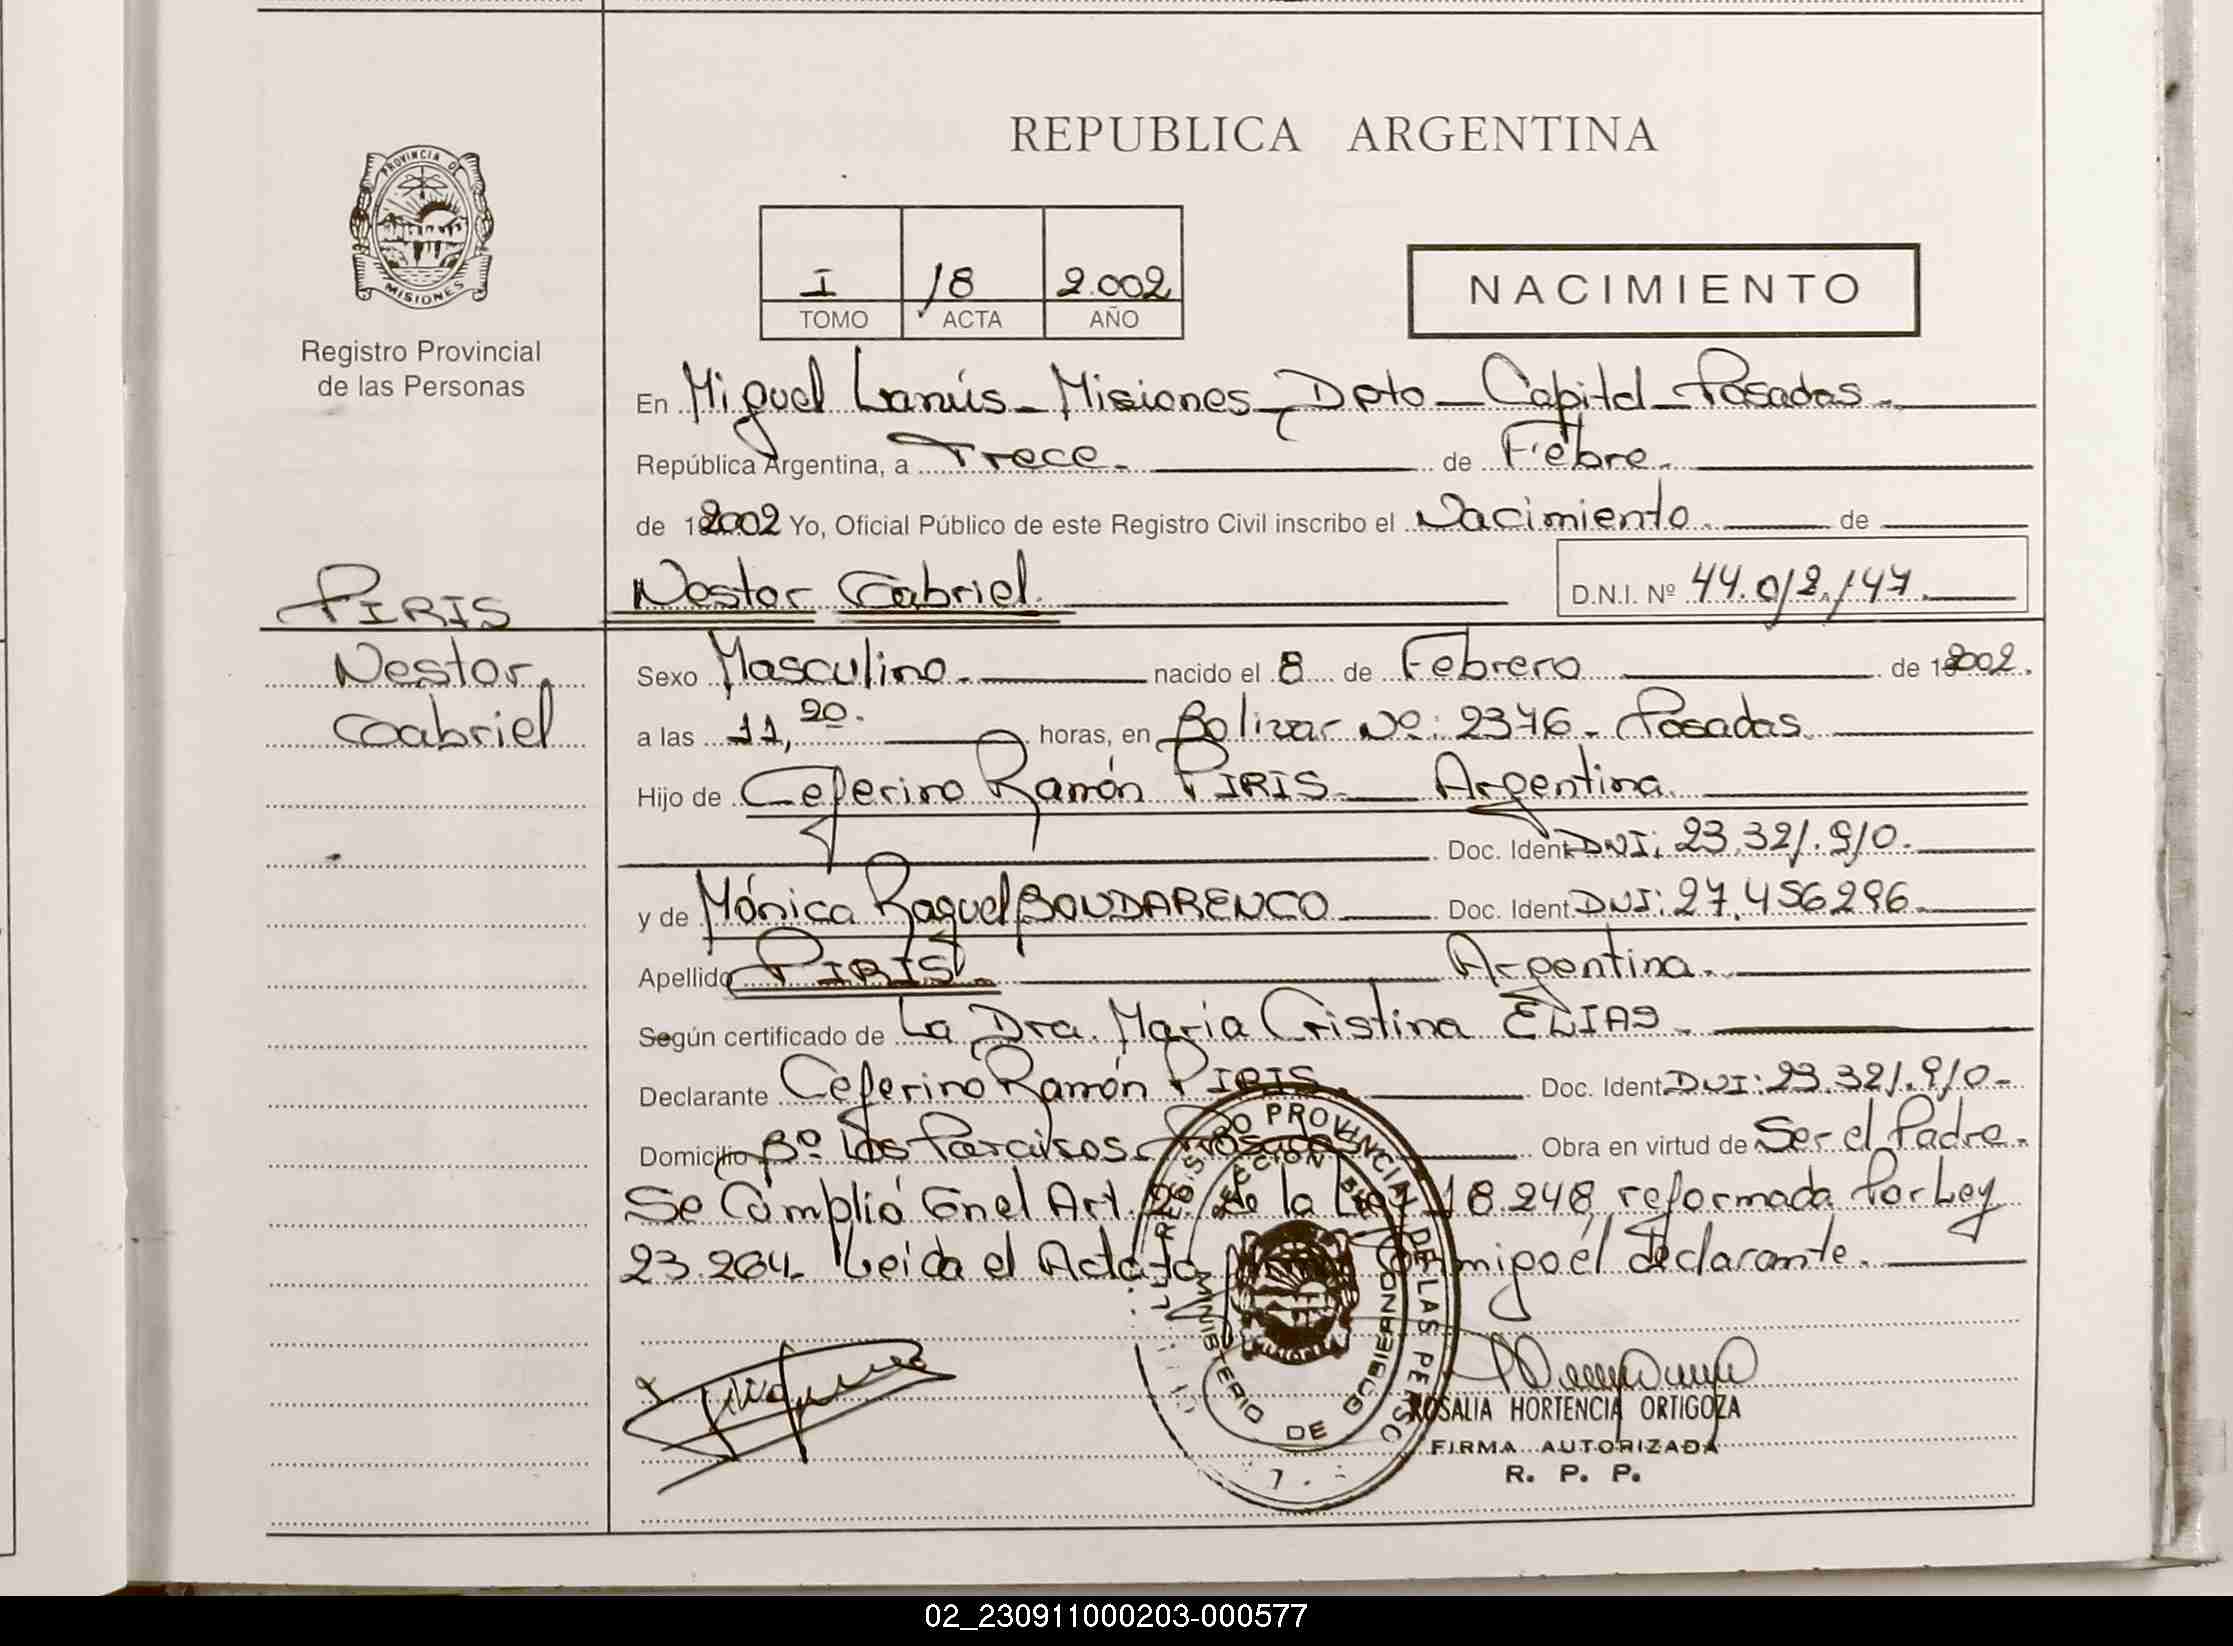 REPUBLICA ARGENTINA
PROVINCIA DE
MISIONES
Registro Provincial
de las Personas
I 18 2.002
TOMO ACTA AÑO
NACIMIENTO
En Miguel Lanús - Misiones - Dpto - Capital - Posadas.
República Argentina, a Trece. de Febre.
de 2002 Yo, Oficial Público de este Registro Civil inscribo el Nacimiento. de
Nestor Gabriel. D.N.I. Nº 44.012.147.
PIRIS
Nestor
Gabriel
Sexo Masculino. nacido el 8 de Febrero de 2002.
a las 11,20. horas, en Bolivar Nº: 2376. Posadas.
Hijo de Ceferino Ramón PIRIS. Argentina.
Doc. Ident DNI: 23.321.910.
y de Mónica Raquel BONDARENCO Doc. Ident. DNI: 27.456296.
Apellido PIRIS. Argentina.
Según certificado de La Dra. María Cristina ELIAS.
Declarante Ceferino Ramón PIRIS. Doc. Ident. DNI: 23.321.910-
Domicilio Bº Los Paraisos. Posadas Obra en virtud de Ser el Padre.
Se Cumplió Con el Art. 2º de la Ley 18.248, reformada Por Ley
23.264. Leida el Acta la Conmigo él declarante.
REGISTRO PROVINCIAL DE LAS PERSO
MINISTERIO DE GOBIERNO
ROSALIA HORTENCIA ORTIGOZA
FIRMA AUTORIZADA
R. P. P.
02_230911000203-000577